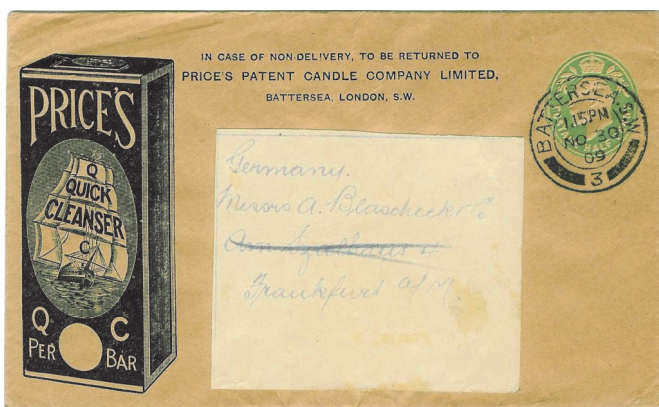 IN CASE OF NON-DELIVERY, TO BE RETURNED TO
PRICE'S PATENT CANDLE COMPANY LIMITED,
BATTERSEA, LONDON, S.W.
PRICE'S
Q
QUICK
CLEANSER
C
Q C
PER BAR
BATTERSEA. S.W.
1.15PM
NO 30
09
3
HALF
Germany.
Messrs A. Blascheck & Co
Am
Frankfurt a/M.